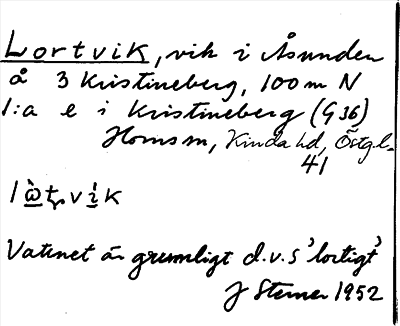 Lortvik, vik i Åsunden
å 3 Kristineberg, 100 m N
1:a e i Kristineberg (G 36)
Horns sn, Kinda hd, Östg.l.
41
Vattnet är grumligt d.v.s 'lortigt'
J Sterner 1952